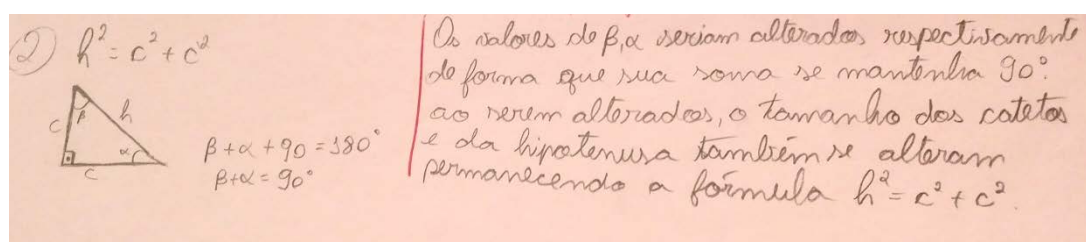 2) h² = c² + c²
β
h
c
α
c
β + α + 90 = 180°
β + α = 90°
Os valores de β, α seriam alterados respectivamente
de forma que sua soma se mantenha 90°.
ao serem alterados, o tamanho dos catetos
e da hipotenusa também se alteram
permanecendo a fórmula h² = c² + c².